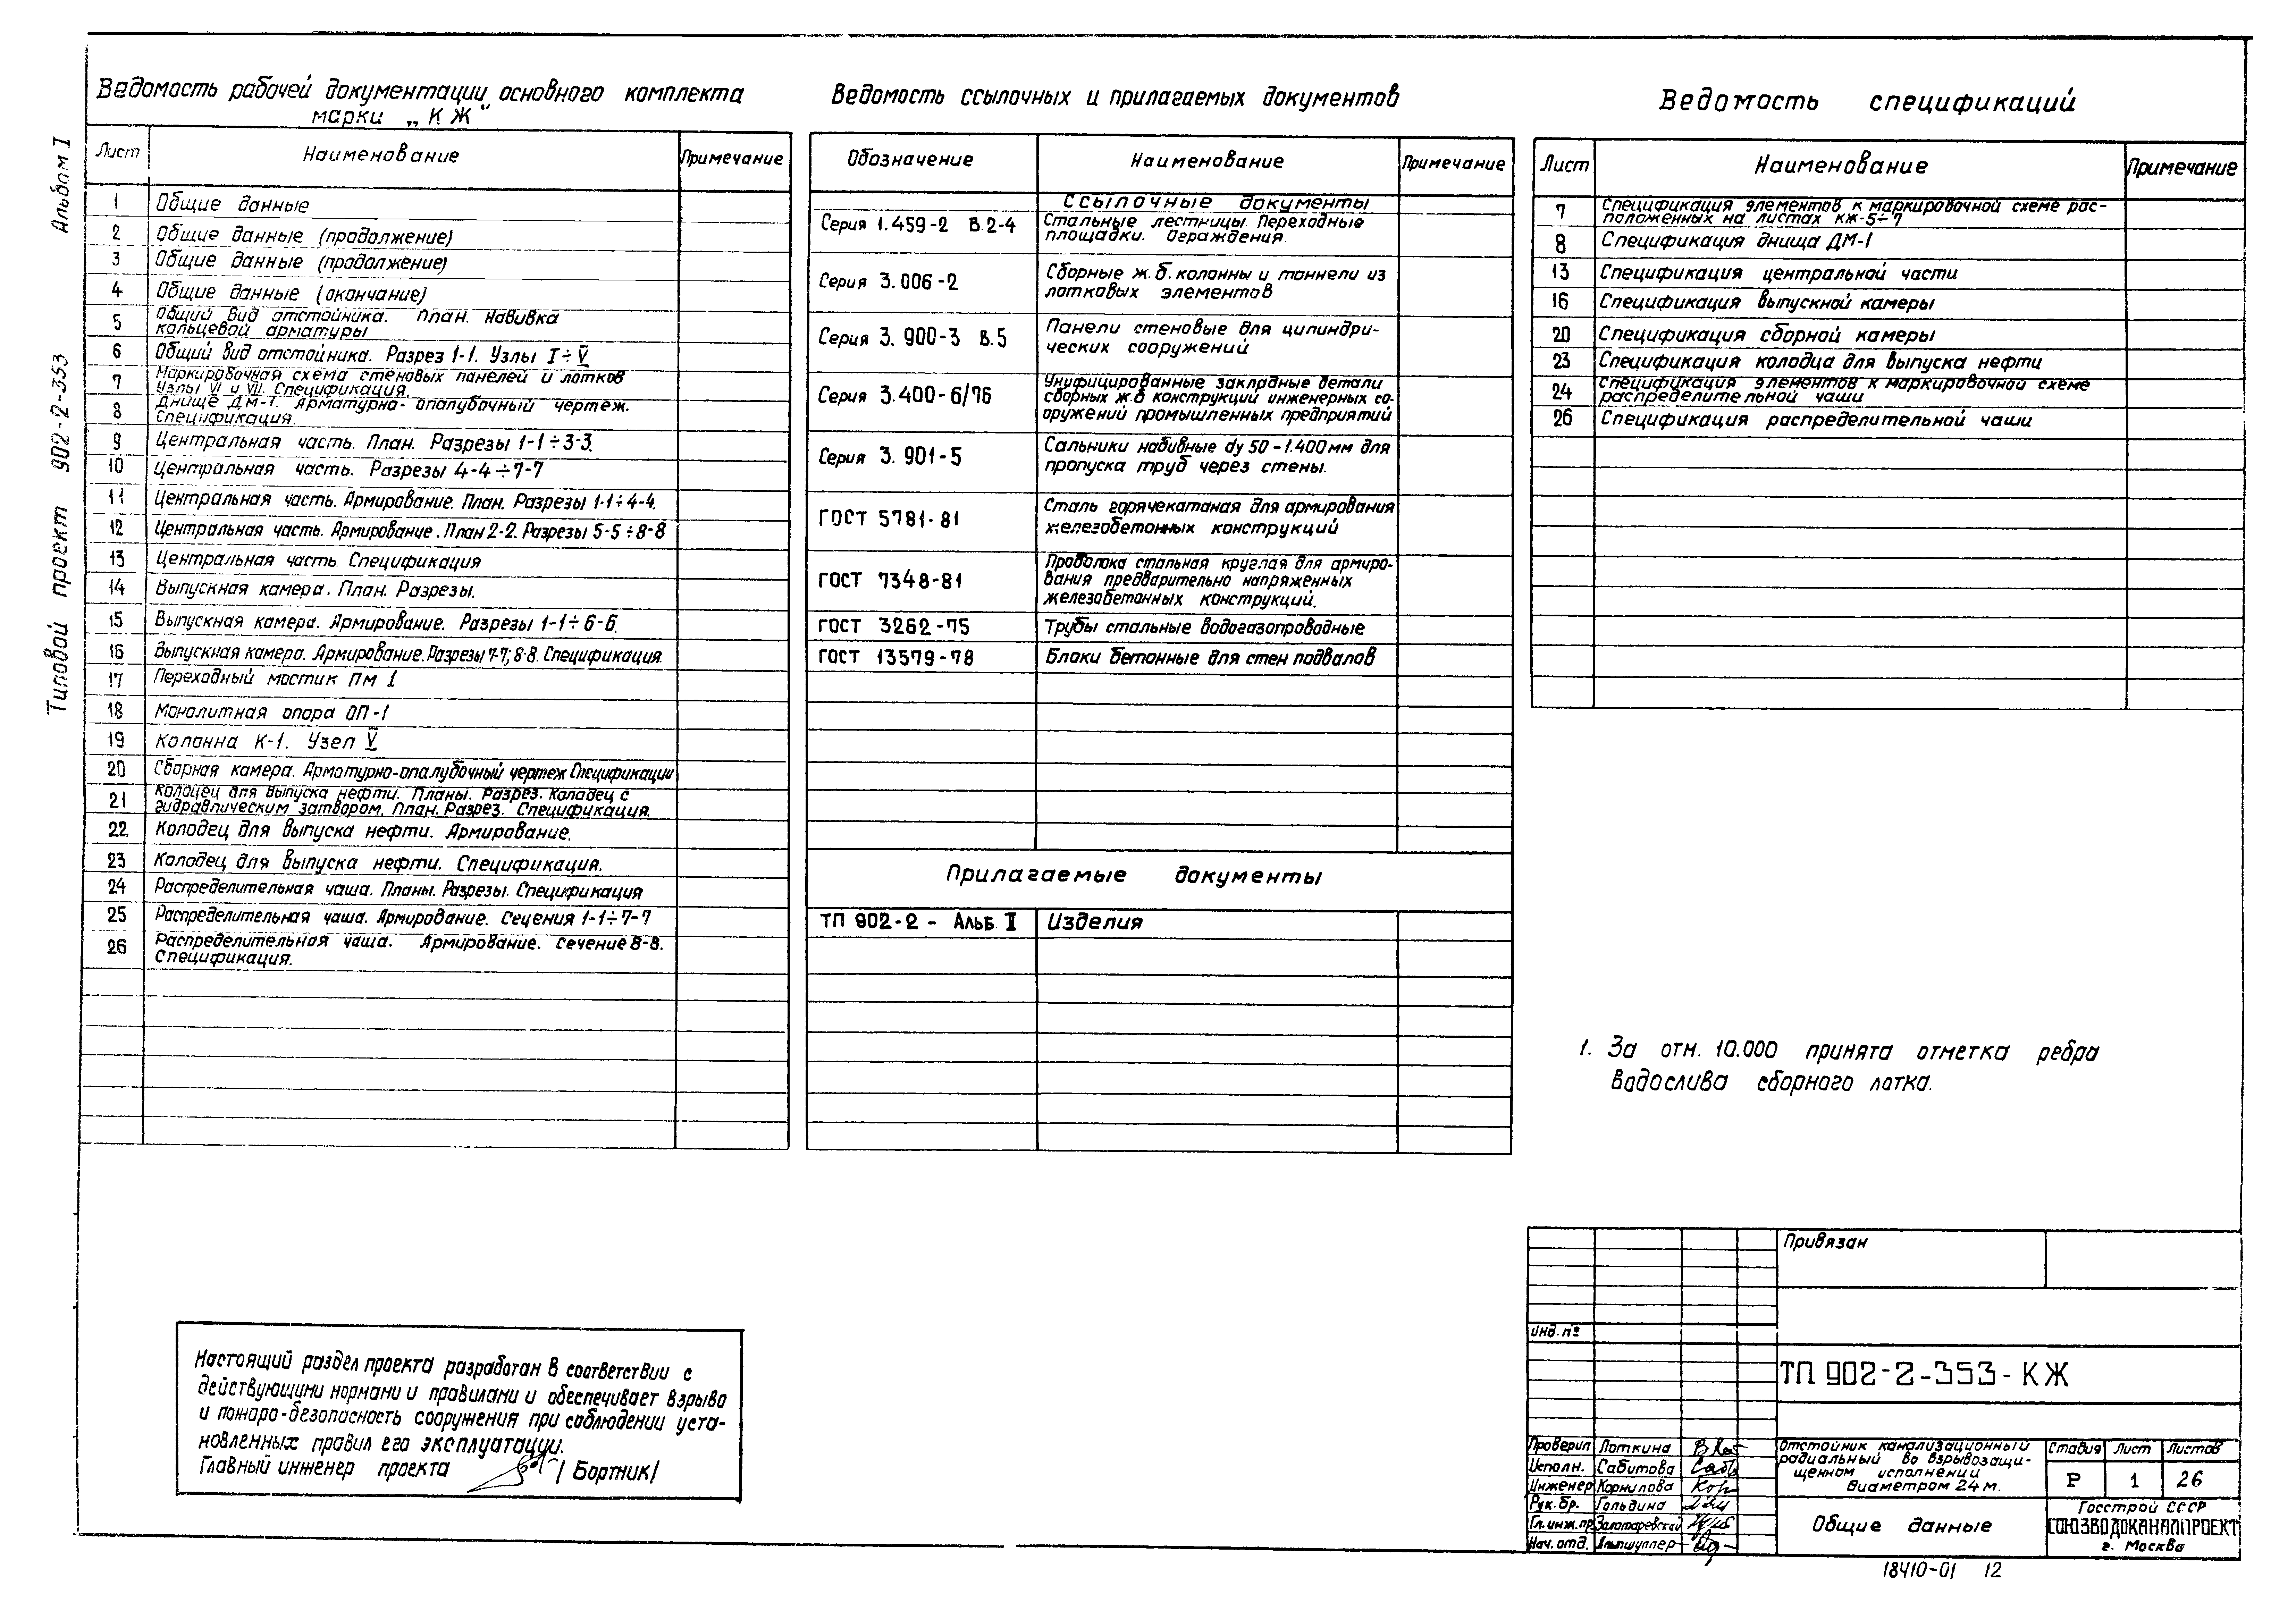 Альбом I
Типовой проект 902-2-353
Ведомость рабочей документации основного комплекта
марки „КЖ“
Лист Наименование Примечание
1 Общие данные
2 Общие данные (продолжение)
3 Общие данные (продолжение)
4 Общие данные (окончание)
5 Общий вид отстойника. План. Навивка
кольцевой арматуры
6 Общий вид отстойника. Разрез 1-1. Узлы I÷V
7 Маркировочная схема стеновых панелей и лотков
Узлы VI и VII. Спецификация.
8 Днище ДМ-1. Арматурно-опалубочный чертеж.
Спецификация.
9 Центральная часть. План. Разрезы 1-1÷3-3.
10 Центральная часть. Разрезы 4-4÷7-7
11 Центральная часть. Армирование. План. Разрезы 1-1÷4-4.
12 Центральная часть. Армирование. План 2-2. Разрезы 5-5÷8-8
13 Центральная часть. Спецификация
14 Выпускная камера. План. Разрезы.
15 Выпускная камера. Армирование. Разрезы 1-1÷6-6.
16 Выпускная камера. Армирование. Разрезы 7-7; 8-8. Спецификация.
17 Переходный мостик ПМ 1
18 Монолитная опора ОП-1
19 Колонна К-1. Узел V
20 Сборная камера. Арматурно-опалубочный чертеж Спецификации
21 Колодец для выпуска нефти. Планы. Разрез. Колодец с
гидравлическим затвором. План. Разрез. Спецификация.
22. Колодец для выпуска нефти. Армирование.
23 Колодец для выпуска нефти. Спецификация.
24 Распределительная чаша. Планы. Разрезы. Спецификация
25 Распределительная чаша. Армирование. Сечения 1-1÷7-7
26 Распределительная чаша. Армирование. Сечение 8-8.
Спецификация.
Ведомость ссылочных и прилагаемых документов
Обозначение Наименование Примечание
Ссылочные документы
Серия 1.459-2 В.2-4 Стальные лестницы. Переходные
площадки. Ограждения.
Серия 3.006-2 Сборные ж.б. колонны и тоннели из
лотковых элементов
Серия 3.900-3 В.5 Панели стеновые для цилиндри-
ческих сооружений
Серия 3.400-6/76 Унифицированные закладные детали
сборных ж.б конструкций инженерных со-
оружений промышленных предприятий
Серия 3.901-5 Сальники набивные dy 50-1.400мм для
пропуска труб через стены.
ГОСТ 5781-81 Сталь горячекатаная для армирования
железобетонных конструкций
ГОСТ 7348-81 Проволока стальная круглая для армиро-
вания предварительно напряженных
железобетонных конструкций.
ГОСТ 3262-75 Трубы стальные водогазопроводные
ГОСТ 13579-78 Блоки бетонные для стен подвалов
Прилагаемые документы
ТП 902-2 - Альб. II Изделия
Ведомость спецификаций
Лист Наименование Примечание
7 Спецификация элементов к маркировочной схеме рас-
положенных на листах КЖ-5÷7
8 Спецификация днища ДМ-1
13 Спецификация центральной части
16 Спецификация выпускной камеры
20 Спецификация сборной камеры
23 Спецификация колодца для выпуска нефти
24 Спецификация элементов к маркировочной схеме
распределительной чаши
26 Спецификация распределительной чаши
1. За отм. 10.000 принята отметка ребра
водослива сборного лотка.
Настоящий раздел проекта разработан в соответствии с
действующими нормами и правилами и обеспечивает взрыво
и пожаро-безопасность сооружения при соблюдении уста-
новленных правил его эксплуатации.
Главный инженер проекта /Бортник/
Привязан
Инв. №
ТП 902-2-353-КЖ
Проверил Лоткина
Исполн. Сабитова
Инженер Корнилова
Рук. бр. Гольдина
Гл. инж. пр. Золотаревский
Нач. отд. Альтшуллер
Отстойник канализационный
радиальный во взрывозащи-
щенном исполнении
диаметром 24 м.
Стадия Лист Листов
Р 1 26
Общие данные
Госстрой СССР
СОЮЗВОДОКАНАЛПРОЕКТ
г. Москва
18410-01 12